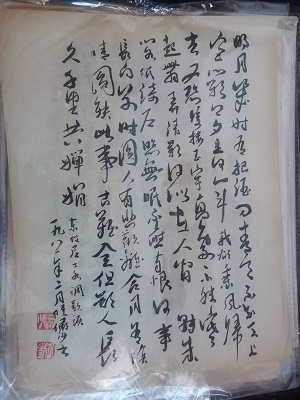 明月几时有把酒问青天不知天上
宫阙今夕是何年我欲乘风归
去又恐琼楼玉宇高处不胜寒
起舞弄清影何似在人间转朱
阁低绮户照无眠不应有恨何事
长向别时圆人有悲欢离合月有阴
晴圆缺此事古难全但愿人长
久千里共婵娟
东坡居士水调歌头
一九八年二月